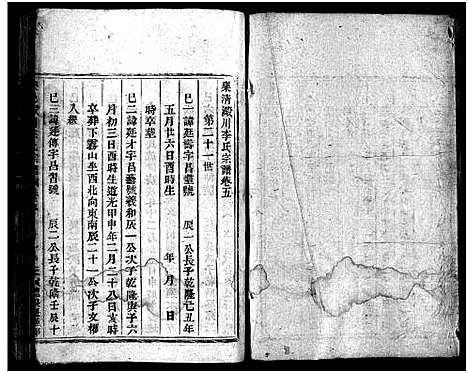 樂清澱川李氏宗譜卷五
第二十一世
巳一諱廷壽字昌臺號 辰一公長子乾隆己丑年
五月廿六日酉時生 年 月 日
時卒葬
巳二諱廷才字昌藝號義和辰一公次子乾隆庚子六
月初三日酉時生道光甲申年二月二十八日亥時
卒葬下霧山坐西北向東南辰二十一公次子文
入繼
巳三諱廷傳字昌 號 辰二公長子乾隆壬辰十